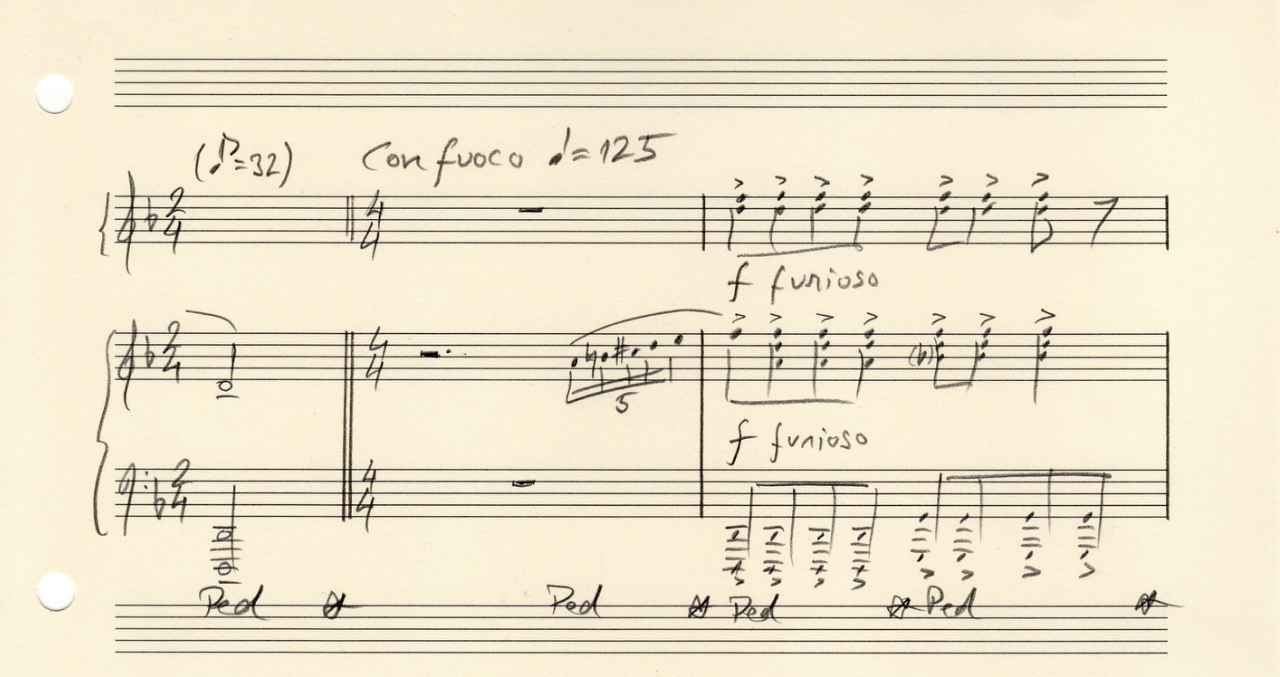 (♪=32) Con fuoco ♩=125
2 4 4 4
f furioso
2 4 4 4
5
(b)
f furioso
2 4 4 4
Ped Ped Ped Ped